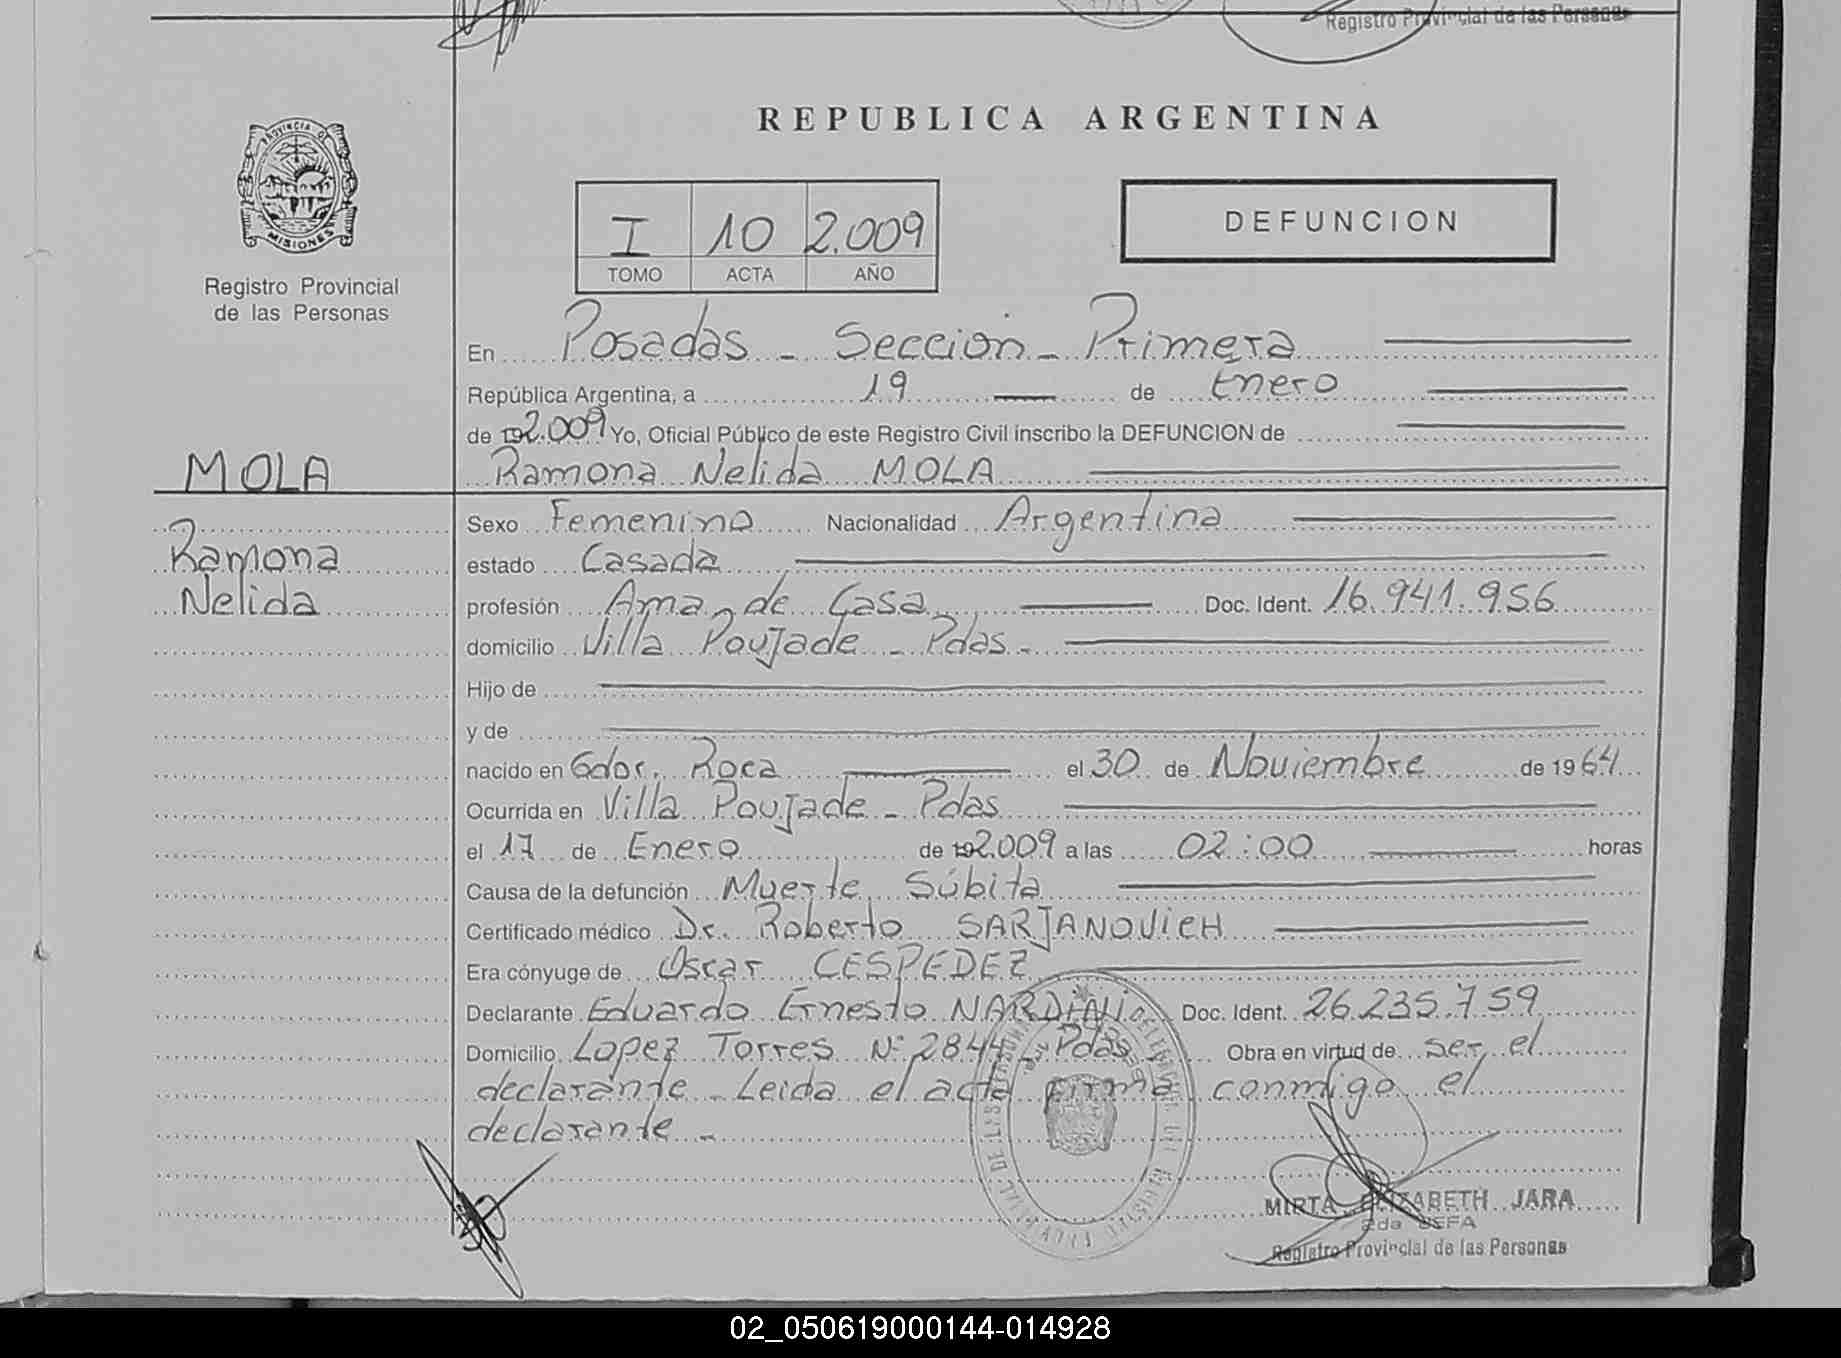 Registro Provincial de las Personas
REPUBLICA ARGENTINA
PROVINCIA DE
MISIONES
Registro Provincial
de las Personas
I 10 2.009
TOMO ACTA AÑO
DEFUNCION
En Posadas - Sección - Primera
República Argentina, a 19 de Enero
de 2.009 Yo, Oficial Público de este Registro Civil inscribo la DEFUNCION de
MOLA
Ramona Nelida MOLA
Ramona
Nelida
Sexo Femenino Nacionalidad Argentina
estado Casada
profesión Ama de Casa Doc. Ident. 16.941.956
domicilio Villa Poujade - Pdas -
Hijo de
y de
nacido en Gdor. Roca el 30 de Noviembre de 1964
Ocurrida en Villa Poujade - Pdas
el 17 de Enero de 2.009 a las 02:00 horas
Causa de la defunción Muerte Súbita
Certificado médico Dr. Roberto SARJANOVICH
Era cónyuge de Oscar CESPEDEZ
Declarante Eduardo Ernesto NARDINI Doc. Ident. 26.235.759
Domicilio Lopez Torres N° 2844 - Pdas Obra en virtud de ser el
declarante - Leida el acta firma conmigo el
declarante -
MIRTA ELIZABETH JARA
2da JEFA
Registro Provincial de las Personas
02_050619000144-014928